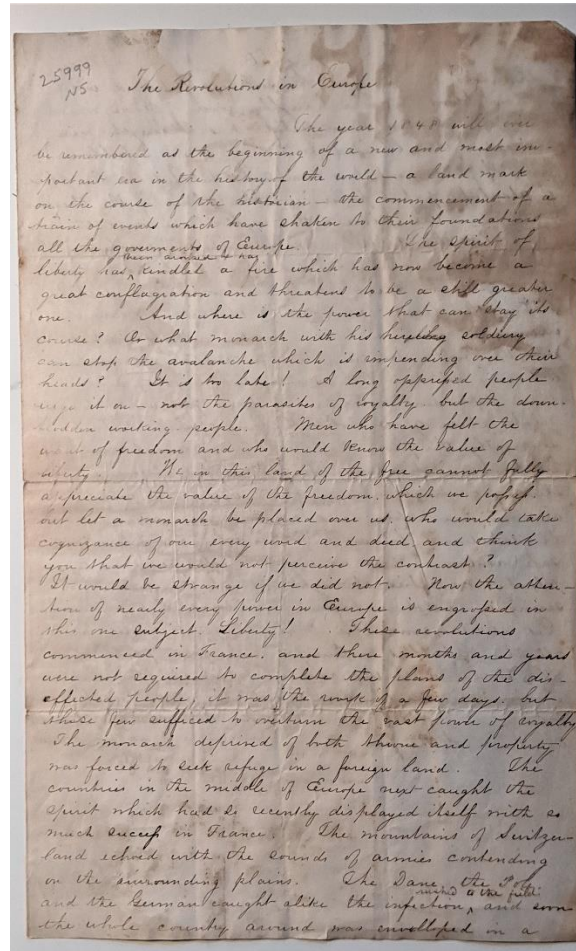 25999
NS
The Revolutions in Europe
The year 1848 will ever
be remembered as the beginning of a new and most im-
portant era in the history of the world – a land mark
on the course of the historian – the commencement of a
train of events which have shaken to their foundations
all the goverments of Europe. The spirit of
been aroused & has
liberty has kindled a fire which has now become a
great conflagration and threatens to be a still greater
one. And where is the power that can stay its
course? Or what monarch with his hireling soldiery
can stop the avalanche which is impending over their
heads? It is too late! A long oppressed people
urge it on – not the parasites of royalty but the down-
trodden working people. Men who have felt the
want of freedom and who would know the value of
liberty. We in this land of the free cannot fully
appreciate the value of the freedom which we possess.
but let a monarch be placed over us, who would take
cognizance of our every word and deed and think
you that we would not perceive the contrast?
It would be strange if we did not. Now the atten-
tion of nearly every power in Europe is engrossed in
this one subject. Liberty! These revolutions
commenced in France, and there months and years
were not required to complete the plans of the dis-
effected people, it was the work of a few days. but
those few sufficed to overturn the vast power of royalty
The monarch deprived of both throne and property
was forced to seek refuge in a foreign land. The
countries in the middle of Europe next caught the
spirit which had so recently displayed itself with so
much success in France. The mountains of Switzer-
land echoed with the sounds of armies contending
on the surrounding plains. The Dane the Pole
rushed to the field
and the German caught alike the infection, and soon
the whole country around was envolloped in a